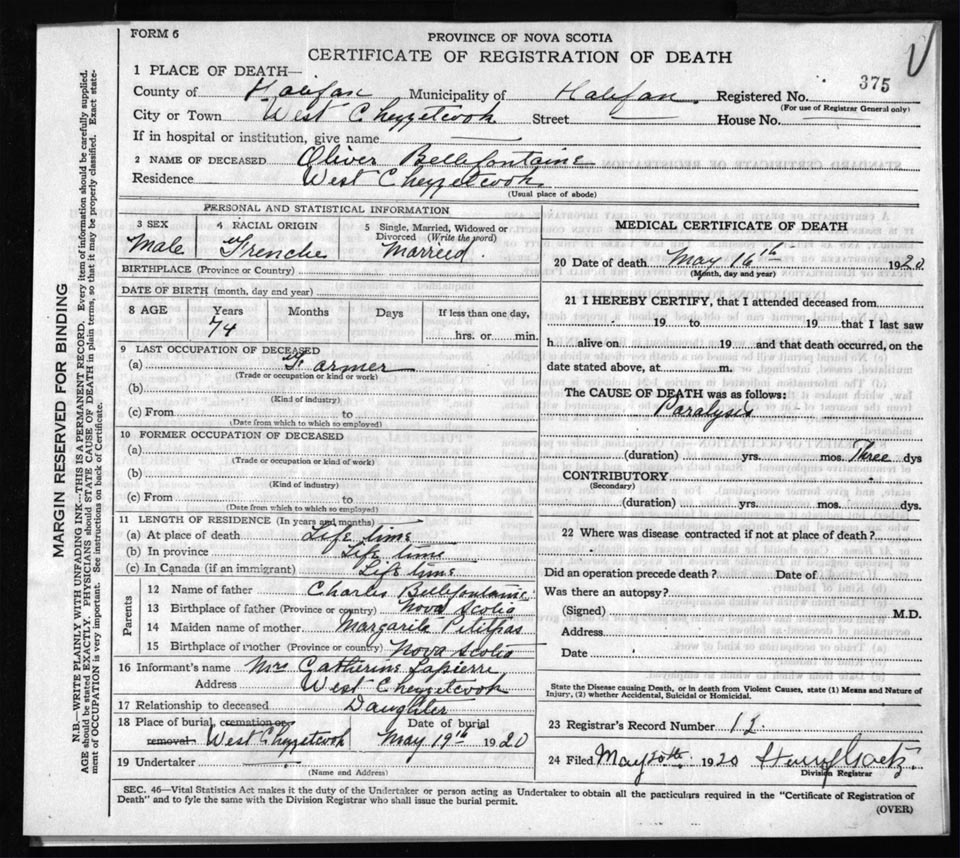 FORM 6
PROVINCE OF NOVA SCOTIA
CERTIFICATE OF REGISTRATION OF DEATH
375
1 PLACE OF DEATH—
County of Halifax Municipality of Halifax. Registered No.
(For use of Registrar General only)
City or Town West Chezzetcook Street House No.
If in hospital or institution, give name
2 NAME OF DECEASED Oliver Bellefontaine
Residence West Chezzetcook
(Usual place of abode)
PERSONAL AND STATISTICAL INFORMATION
3 SEX 4 RACIAL ORIGIN 5 Single, Married, Widowed or Divorced (Write the word)
Male French Married
BIRTHPLACE (Province or Country)
DATE OF BIRTH (month, day and year)
8 AGE Years Months Days If less than one day,
74 hrs. or min.
9 LAST OCCUPATION OF DECEASED
(a) Farmer
(Trade or occupation or kind or work)
(b)
(Kind of industry)
(c) From to
(Date from which to which so employed)
10 FORMER OCCUPATION OF DECEASED
(a)
(Trade or occupation or kind of work)
(b)
(Kind of industry)
(c) From to
(Date from which to which so employed)
11 LENGTH OF RESIDENCE (In years and months)
(a) At place of death Life time
(b) In province Life time
(c) In Canada (if an immigrant) Life time
Parents
12 Name of father Charles Bellefontaine
13 Birthplace of father (Province or country) Nova Scotia
14 Maiden name of mother Margarite Petitpas
15 Birthplace of mother (Province or country) Nova Scotia
16 Informant's name Mrs Catherine Lapierre
Address West Chezzetcook
17 Relationship to deceased Daughter
18 Place of burial, cremation or removal West Chezzetcook Date of burial May 19th 1920
19 Undertaker
(Name and Address)
MEDICAL CERTIFICATE OF DEATH
20 Date of death May 16th 1920
(Month, day and year)
21 I HEREBY CERTIFY, that I attended deceased from
19 to 19 that I last saw
h alive on 19 and that death occurred, on the
date stated above, at m.
The CAUSE OF DEATH was as follows:
Paralysis
(duration) yrs. mos. Three dys
CONTRIBUTORY
(Secondary)
(duration) yrs. mos. dys.
22 Where was disease contracted if not at place of death?
Did an operation precede death? Date of
Was there an autopsy?
(Signed) M.D.
Address
Date
State the Disease causing Death, or in death from Violent Causes, state (1) Means and Nature of
Injury, (2) whether Accidental, Suicidal or Homicidal.
23 Registrar's Record Number 12.
24 Filed May 20th. 1920
Division Registrar
SEC. 46—Vital Statistics Act makes it the duty of the Undertaker or person acting as Undertaker to obtain all the particulars required in the "Certificate of Registration of
Death" and to fyle the same with the Division Registrar who shall issue the burial permit.
(OVER)
MARGIN RESERVED FOR BINDING
N.B.—WRITE PLAINLY WITH UNFADING INK—THIS IS A PERMANENT RECORD. Every item of information should be carefully supplied.
AGE should be stated EXACTLY. PHYSICIANS should STATE CAUSE OF DEATH in plain terms, so that it may be properly classified. Exact state-
ment of OCCUPATION is very important. See instructions on back of Certificate.